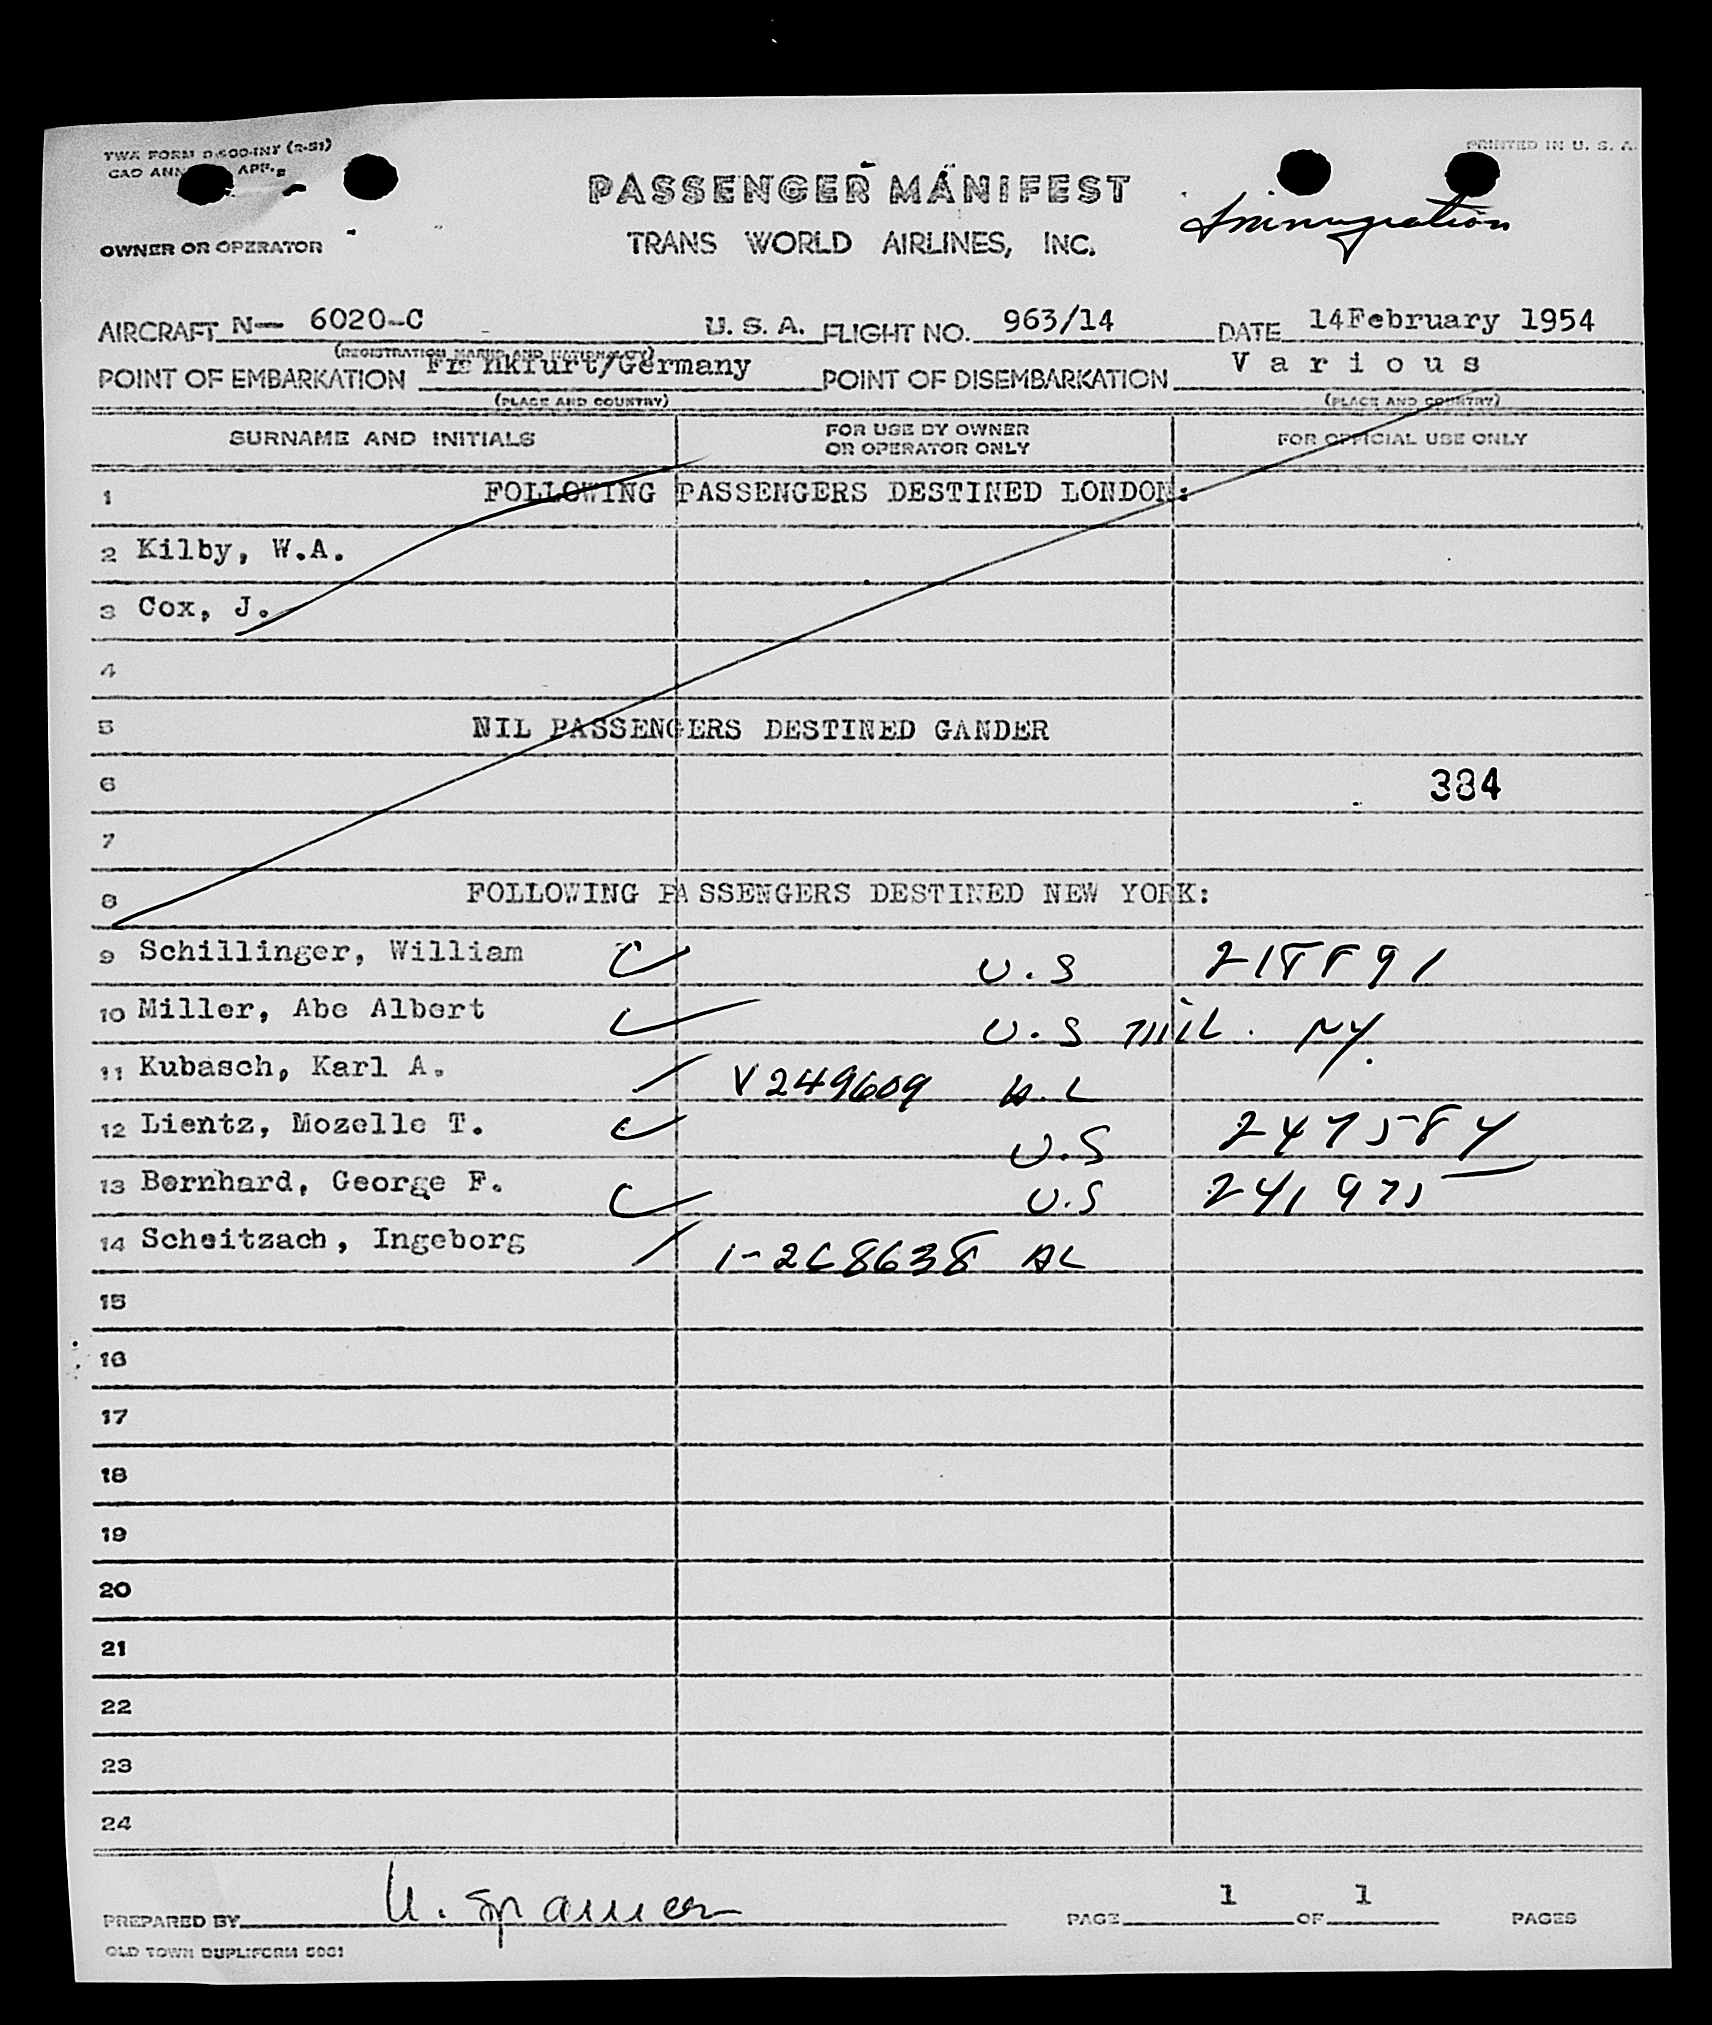 TWA FORM
PRINTED IN U. S. A.
PASSENGER MANIFEST
Immigration
OWNER OR OPERATOR
TRANS WORLD AIRLINES, INC.
AIRCRAFT N- 6020-C U. S. A. FLIGHT NO. 963/14 DATE 14February 1954
(REGISTRATION MARKS AND NATIONALITY)
POINT OF EMBARKATION Frankfurt/Germany POINT OF DISEMBARKATION Various
(PLACE AND COUNTRY) (PLACE AND COUNTRY)
SURNAME AND INITIALS FOR USE BY OWNER OR OPERATOR ONLY FOR OFFICIAL USE ONLY
1 FOLLOWING PASSENGERS DESTINED LONDON:
2 Kilby, W.A.
3 Cox, J.
4
5 NIL PASSENGERS DESTINED GANDER
6 384
7
8 FOLLOWING PASSENGERS DESTINED NEW YORK:
9 Schillinger, William U.S 218891
10 Miller, Abe Albert U.S mil. NY.
11 Kubasch, Karl A. V249609 A.L
12 Lientz, Mozelle T. U.S 247584
13 Bernhard, George F. U.S 241975
14 Scheitzach, Ingeborg 1-268638 AL
15
16
17
18
19
20
21
22
23
24
PREPARED BY PAGE 1 OF 1 PAGES
OLD TOWN DUPLIFORM